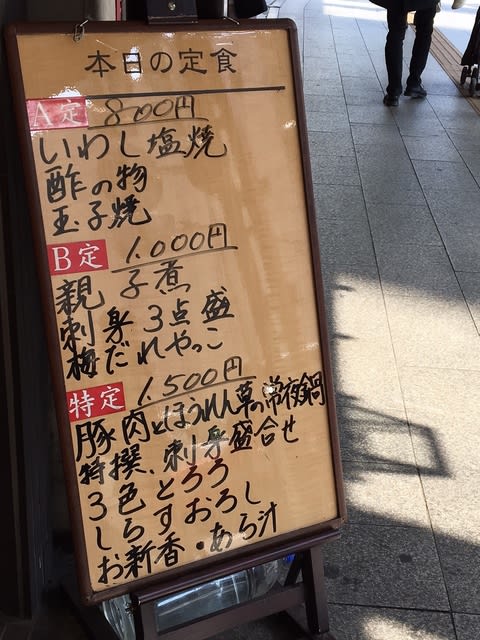 本日の定食
A定 800円
いわし塩焼
酢の物
玉子焼
B定 1.000円
親子煮
刺身3点盛
梅だれやっこ
特定 1.500円
豚肉とほうれん草の常夜鍋
特撰、刺身盛合せ
3色とろろ
しらすおろし
お新香・あら汁